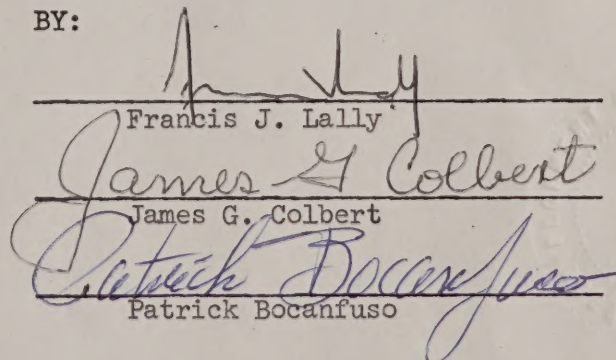 BY:
Francis J. Lally
James G Colbert
James G. Colbert
Patrick Bocanfuso
Patrick Bocanfuso